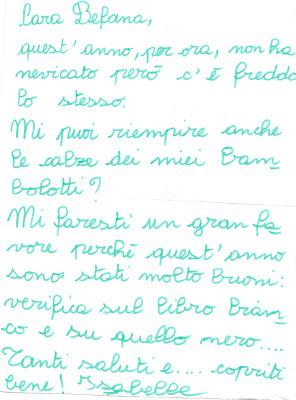 Cara Befana,
quest'anno, per ora, non ha
nevicato però c'è freddo
lo stesso.
Mi puoi riempire anche
le calze dei miei bam_
bolotti?
Mi faresti un gran fa_
vore perchè quest'anno
sono stati molto buoni:
verifica sul libro bian_
co e su quello nero....
Tanti saluti e.... copriti
bene! Isabelle